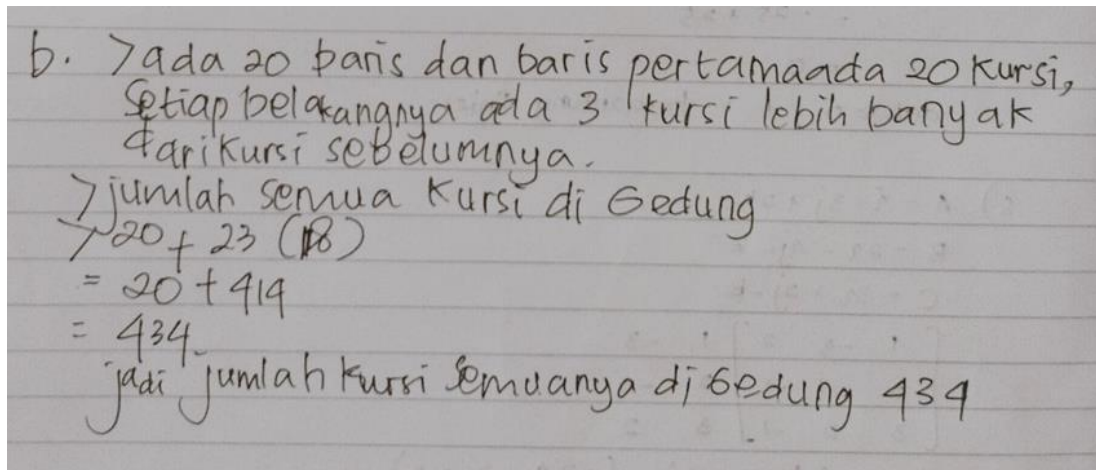 b. >ada 20 baris dan baris pertamaada 20 kursi,
setiap belakangnya ada 3 kursi lebih banyak
dari kursi sebelumnya.
> jumlah semua kursi di Gedung
> 20 + 23 (18)
= 20 + 414
= 434
jadi jumlah kursi semuanya di Gedung 434